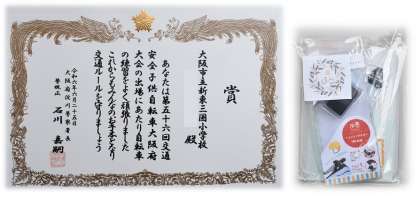 賞
大阪市立新東三国小学校
殿
あなたは第五十六回交通
安全子供自転車大阪府
大会の出場にあたり自転車
の練習をよく頑張りました
これからもみんなのお手本となり
交通ルールを守りましょう
令和六年六月二十五日
大阪府淀川警察署長
警視正 石川 嘉嗣